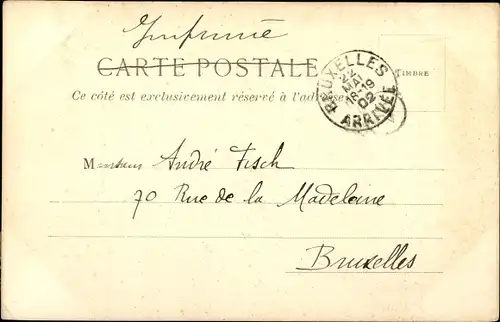 Imprimé
CARTE POSTALE
Ce côté est exclusivement réservé à l'adresse
TIMBRE
BRUXELLES
22
MAI
18-19
02
ARRIVÉE
Monsieur André Fisch
70 Rue de la Madeleine
Bruxelles